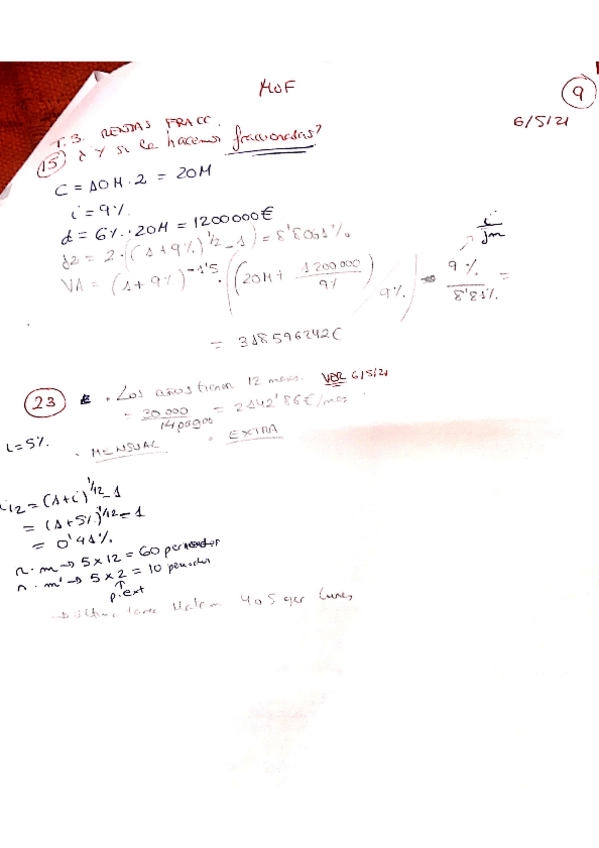 MOF
9
6/5/21
T.3. RENTAS FRACC.
15 ¿Y si le hacemos fraccionadas?
C = 10M · 2 = 20M
i = 9%
d = 6% · 20M = 1200000€
J2 = 2 · ((1+9%)^1/2 - 1) = 8'8061%
VA = (1+9%)^-1'5 · ((20M + 1200000/9%) / 9%) · 9%/8'81% =
i/Jm
= 318596242€
23 · Los años tienen 12 meses. VER 6/5/21
= 30.000/14 pagos = 2142'86€/mes
i = 5%
· MENSUAL · EXTRA
i12 = (1+i)^1/12 - 1
= (1+5%)^1/12 - 1
= 0'41%
n · m → 5 x 12 = 60 periodos
n · m' → 5 x 2 = 10 periodos
p. ext
4 o 5 lunes